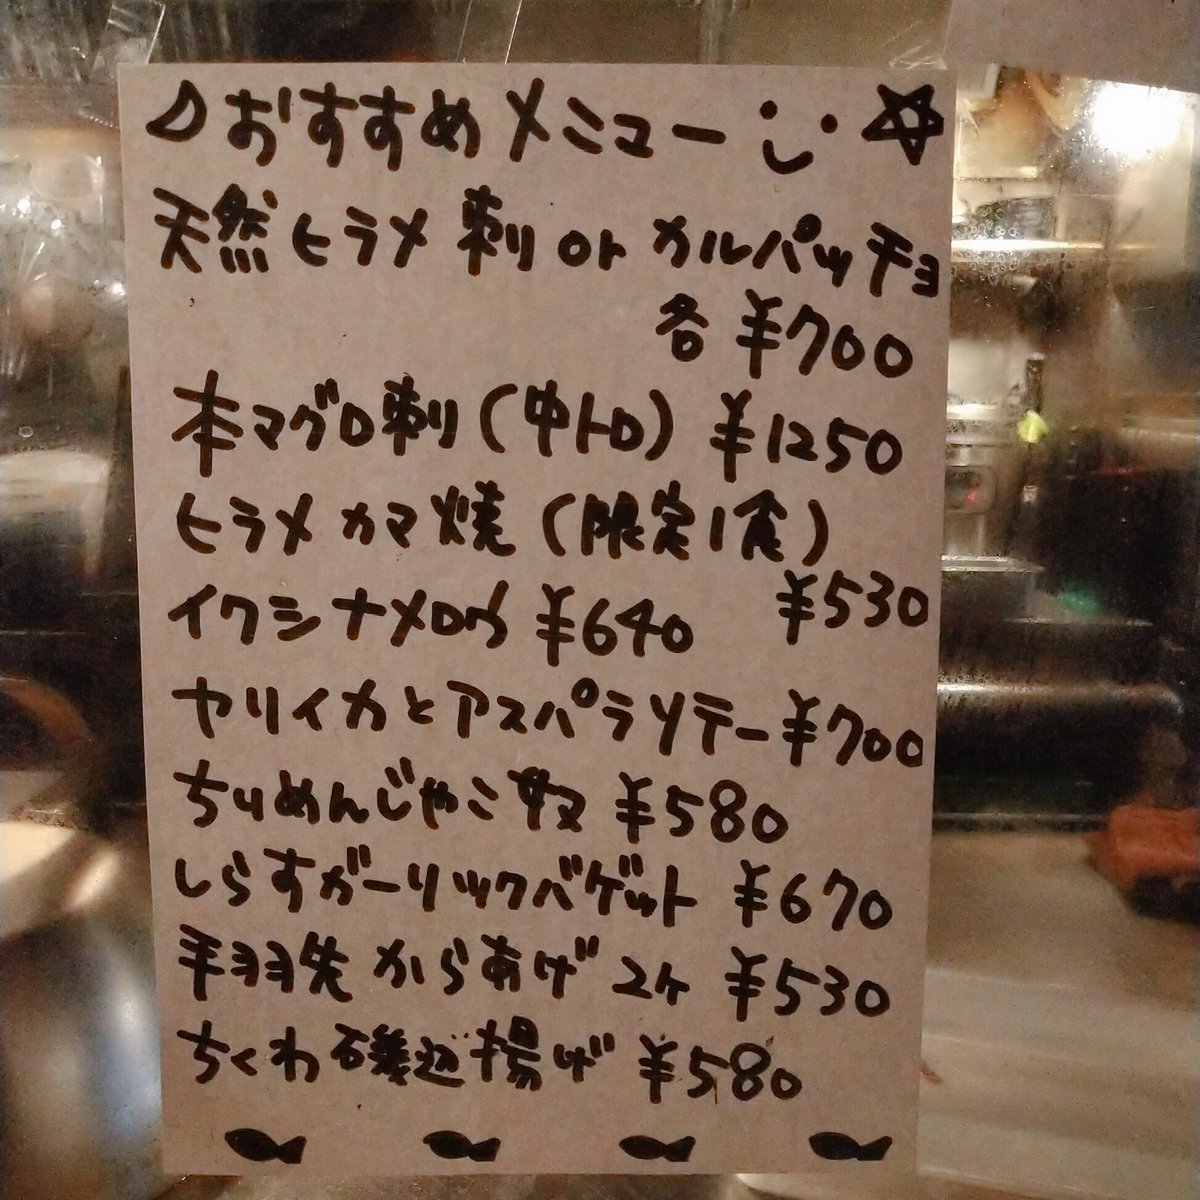 おすすめメニュー
天然ヒラメ刺 or カルパッチョ
各 ¥700
本マグロ刺(中トロ) ¥1250
ヒラメカマ焼(限定1食)
¥530
イワシナメロウ ¥640
ヤリイカとアスパラソテー ¥700
ちりめんじゃこサラダ ¥580
しらすガーリックバゲット ¥670
手羽先からあげ 2ヶ ¥530
ちくわ磯辺揚げ ¥580